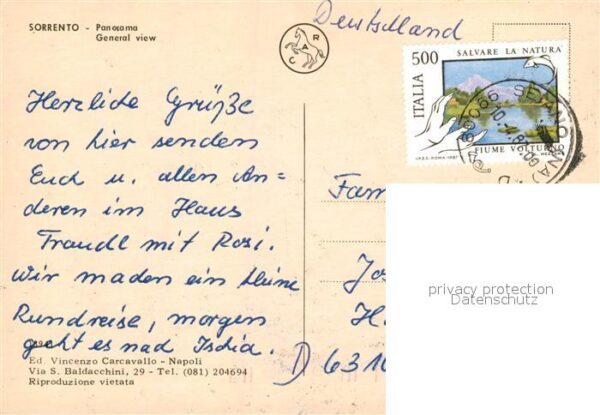 SORRENTO - Panorama
General view
CARA
Deutschland
500
ITALIA
SALVARE LA NATURA
FIUME VOLTURNO
I.P.Z.S. - ROMA - 1987
80066 SEIANO (NA)
Herzliche Grüße
von hier senden
Euch u. allen An-
deren im Haus
Traudl mit Rosi.
Wir machen ein kleine
Rundreise, morgen
geht es nach Ischia.
Fam
Jo
H.
D 631
privacy protection
Datenschutz
Ed. Vincenzo Carcavallo - Napoli
Via S. Baldacchini, 29 - Tel. (081) 204694
Riproduzione vietata